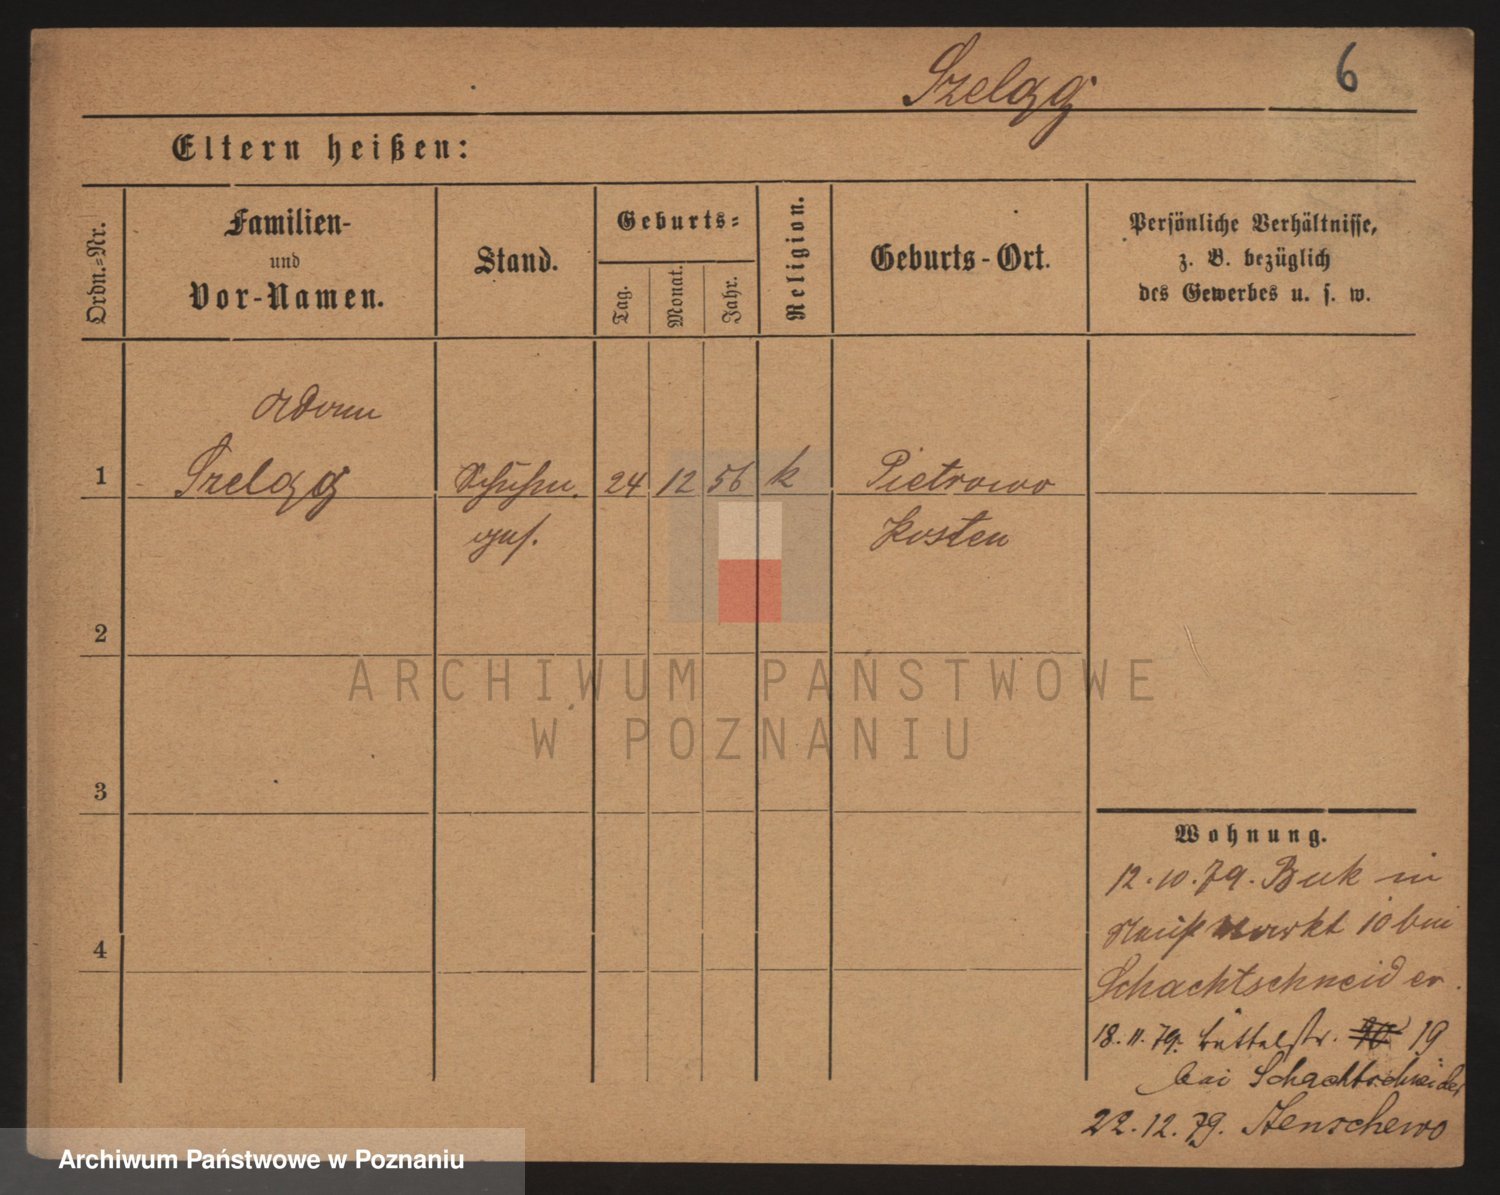 Szelągą
6
Eltern heißen:
Ordn.-Nr.
Familien-
und
Vor-Namen.
Stand.
Geburts-
Tag.
Monat.
Jahr.
Religion.
Geburts-Ort.
Persönliche Verhältnisse,
z. B. bezüglich
des Gewerbes u. s. w.
Adam
1 Szelągą Schuhm. 24 12 56 k Pietrowo
ges. Kosten
2
3
4
Wohnung.
12.10.79. Buk in
Markt 10 bei
Schachtschneider.
18.11.79. Büttelstr. 19
bei Schachtschneider
22.12.79. Henschewo
ARCHIWUM PAŃSTWOWE
W POZNANIU
Archiwum Państwowe w Poznaniu